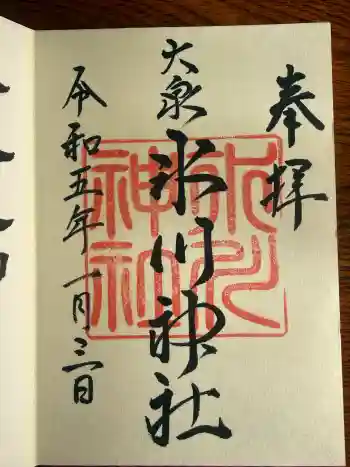 奉拝
大泉
氷川神社
氷川神社
令和五年一月三日